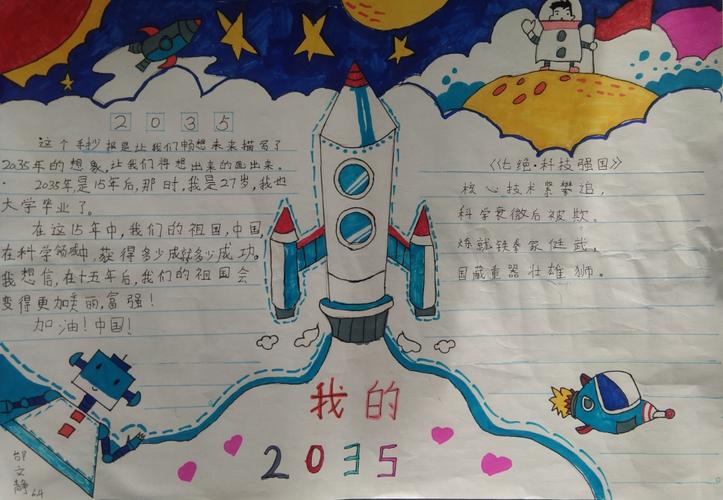 2035
这个手抄报是让我们畅想未来描写了
2035年的想象,让我们将想出来的画出来。
2035年是15年后,那时,我是27岁,我也
大学毕业了。
在这15年中,我们的祖国,中国,
在科学领域中,获得多少成就多少成功。
我想信,在十五年后,我们的祖国会
变得更加美丽,富强!
加油!中国!
《七绝·科技强国》
核心技术紧攀追,
科学衰微后被欺。
炼就铁拳家健武,
国藏重器壮雄狮。
我的
2035
文静
64